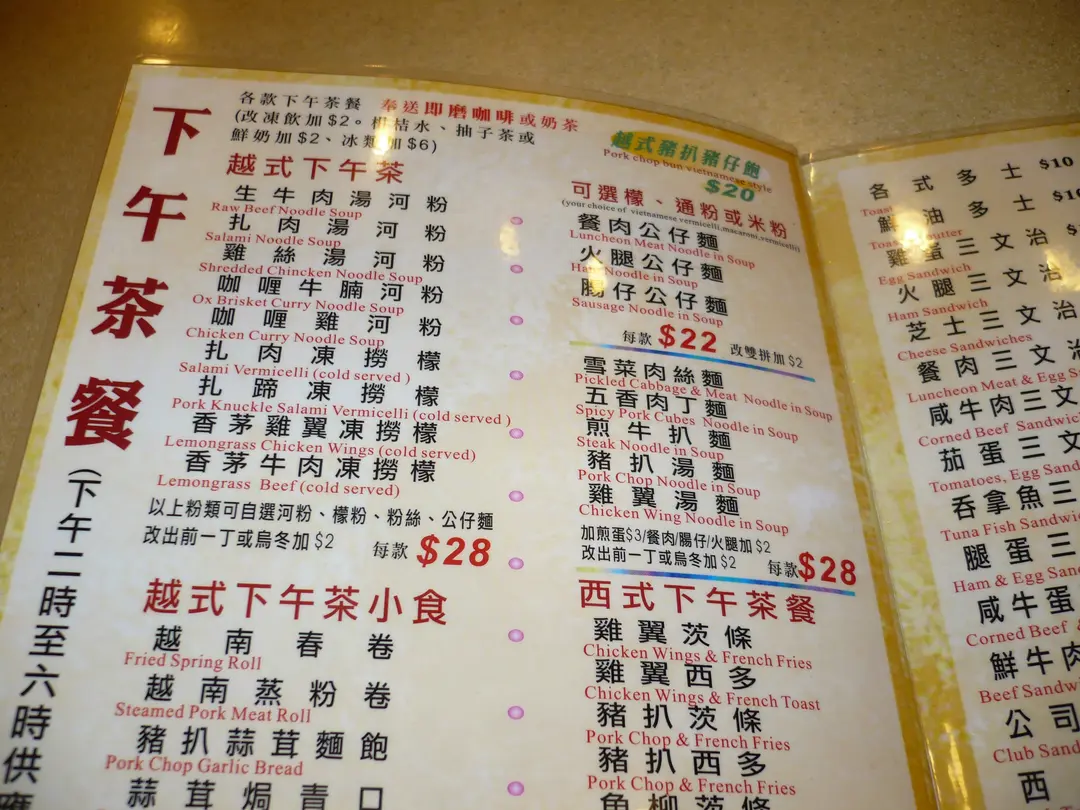 下午茶餐
(下午二時至六時供應
各款下午茶餐 奉送即磨咖啡或奶茶
(改凍飲加$2。柑桔水、抽子茶或
鮮奶加$2、冰類加$6)
越式下午茶
生牛肉湯河粉
Raw Beef Noodle Soup
扎肉湯河粉
Salami Noodle Soup
雞絲湯河粉
Shredded Chincken Noodle Soup
咖喱牛腩河粉
Ox Brisket Curry Noodle Soup
咖喱雞河粉
Chicken Curry Noodle Soup
扎肉凍撈檬
Salami Vermicelli (cold served )
扎蹄凍撈檬
Pork Knuckle Salami Vermicelli (cold served )
香茅雞翼凍撈檬
Lemongrass Chicken Wings (cold served)
香茅牛肉凍撈檬
Lemongrass Beef (cold served)
以上粉類可自選河粉、檬粉、粉絲、公仔麵
改出前一丁或烏冬加$2 每款$28
越式下午茶小食
越南春卷
Fried Spring Roll
越南蒸粉卷
Steamed Pork Meat Roll
豬扒蒜茸麵飽
Pork Chop Garlic Bread
蒜茸焗青口
越式豬扒豬仔飽
Pork chop bun vietnamese style
$20
可選檬、通粉或米粉
(your choice of vietnamese vermicelli,macaroni,vermicelli)
餐肉公仔麵
Luncheon Meat Noodle in Soup
火腿公仔麵
Ham Noodle in Soup
腸仔公仔麵
Sausage Noodle in Soup
每款$22 改雙拼加$2
雪菜肉絲麵
Pickled Cabbage & Meat Noodle in Soup
五香肉丁麵
Spicy Pork Cubes Noodle in Soup
煎牛扒麵
Steak Noodle in Soup
豬扒湯麵
Pork Chop Noodle in Soup
雞翼湯麵
Chicken Wing Noodle in Soup
加煎蛋$3/餐肉/腸仔/火腿加$2
改出前一丁或烏冬加$2 每款$28
西式下午茶餐
雞翼茨條
Chicken Wings & French Fries
雞翼西多
Chicken Wings & French Toast
豬扒茨條
Pork Chop & French Fries
豬扒西多
Pork Chop & French Fries
魚柳茨條
各式多士 $10
Toast
鮮油多士
Toast Butter
雞蛋三文治
Egg Sandwich
火腿三文治
Ham Sandwich
芝士三文治
Cheese Sandwiches
餐肉三文
Luncheon Meat & Egg
咸牛肉三文
Corned Beef
茄蛋三文
Tomatoes, Egg
吞拿魚三
Tuna Fish
腿蛋三
Ham & Egg
咸牛蛋
Corned Beef
鮮牛肉
Beef
公司
Club
西